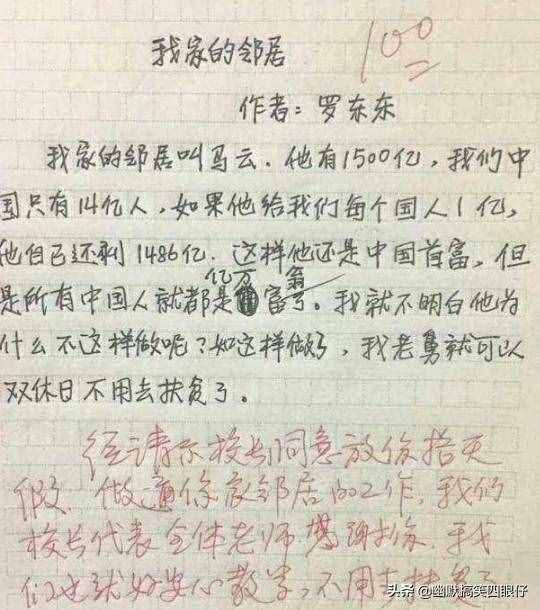 100
我家的邻居
作者：罗东东
我家的邻居叫马云.他有1500亿，我们中
国只有14亿人，如果他给我们每个国人1亿，
他自己还剩1486亿.这样他还是中国首富，但
亿万 翁
是所有中国人就都是富了。我就不明白他为
什么不这样做呢？如这样做了，我老舅就可以
双休日不用去扶贫了。
经请示校长同意放你拾天
假，做通你家邻居的工作，我们
校长代表全体老师感谢你.我
们也就好安心教学，不用去扶贫了
头条 @幽默搞笑四眼仔